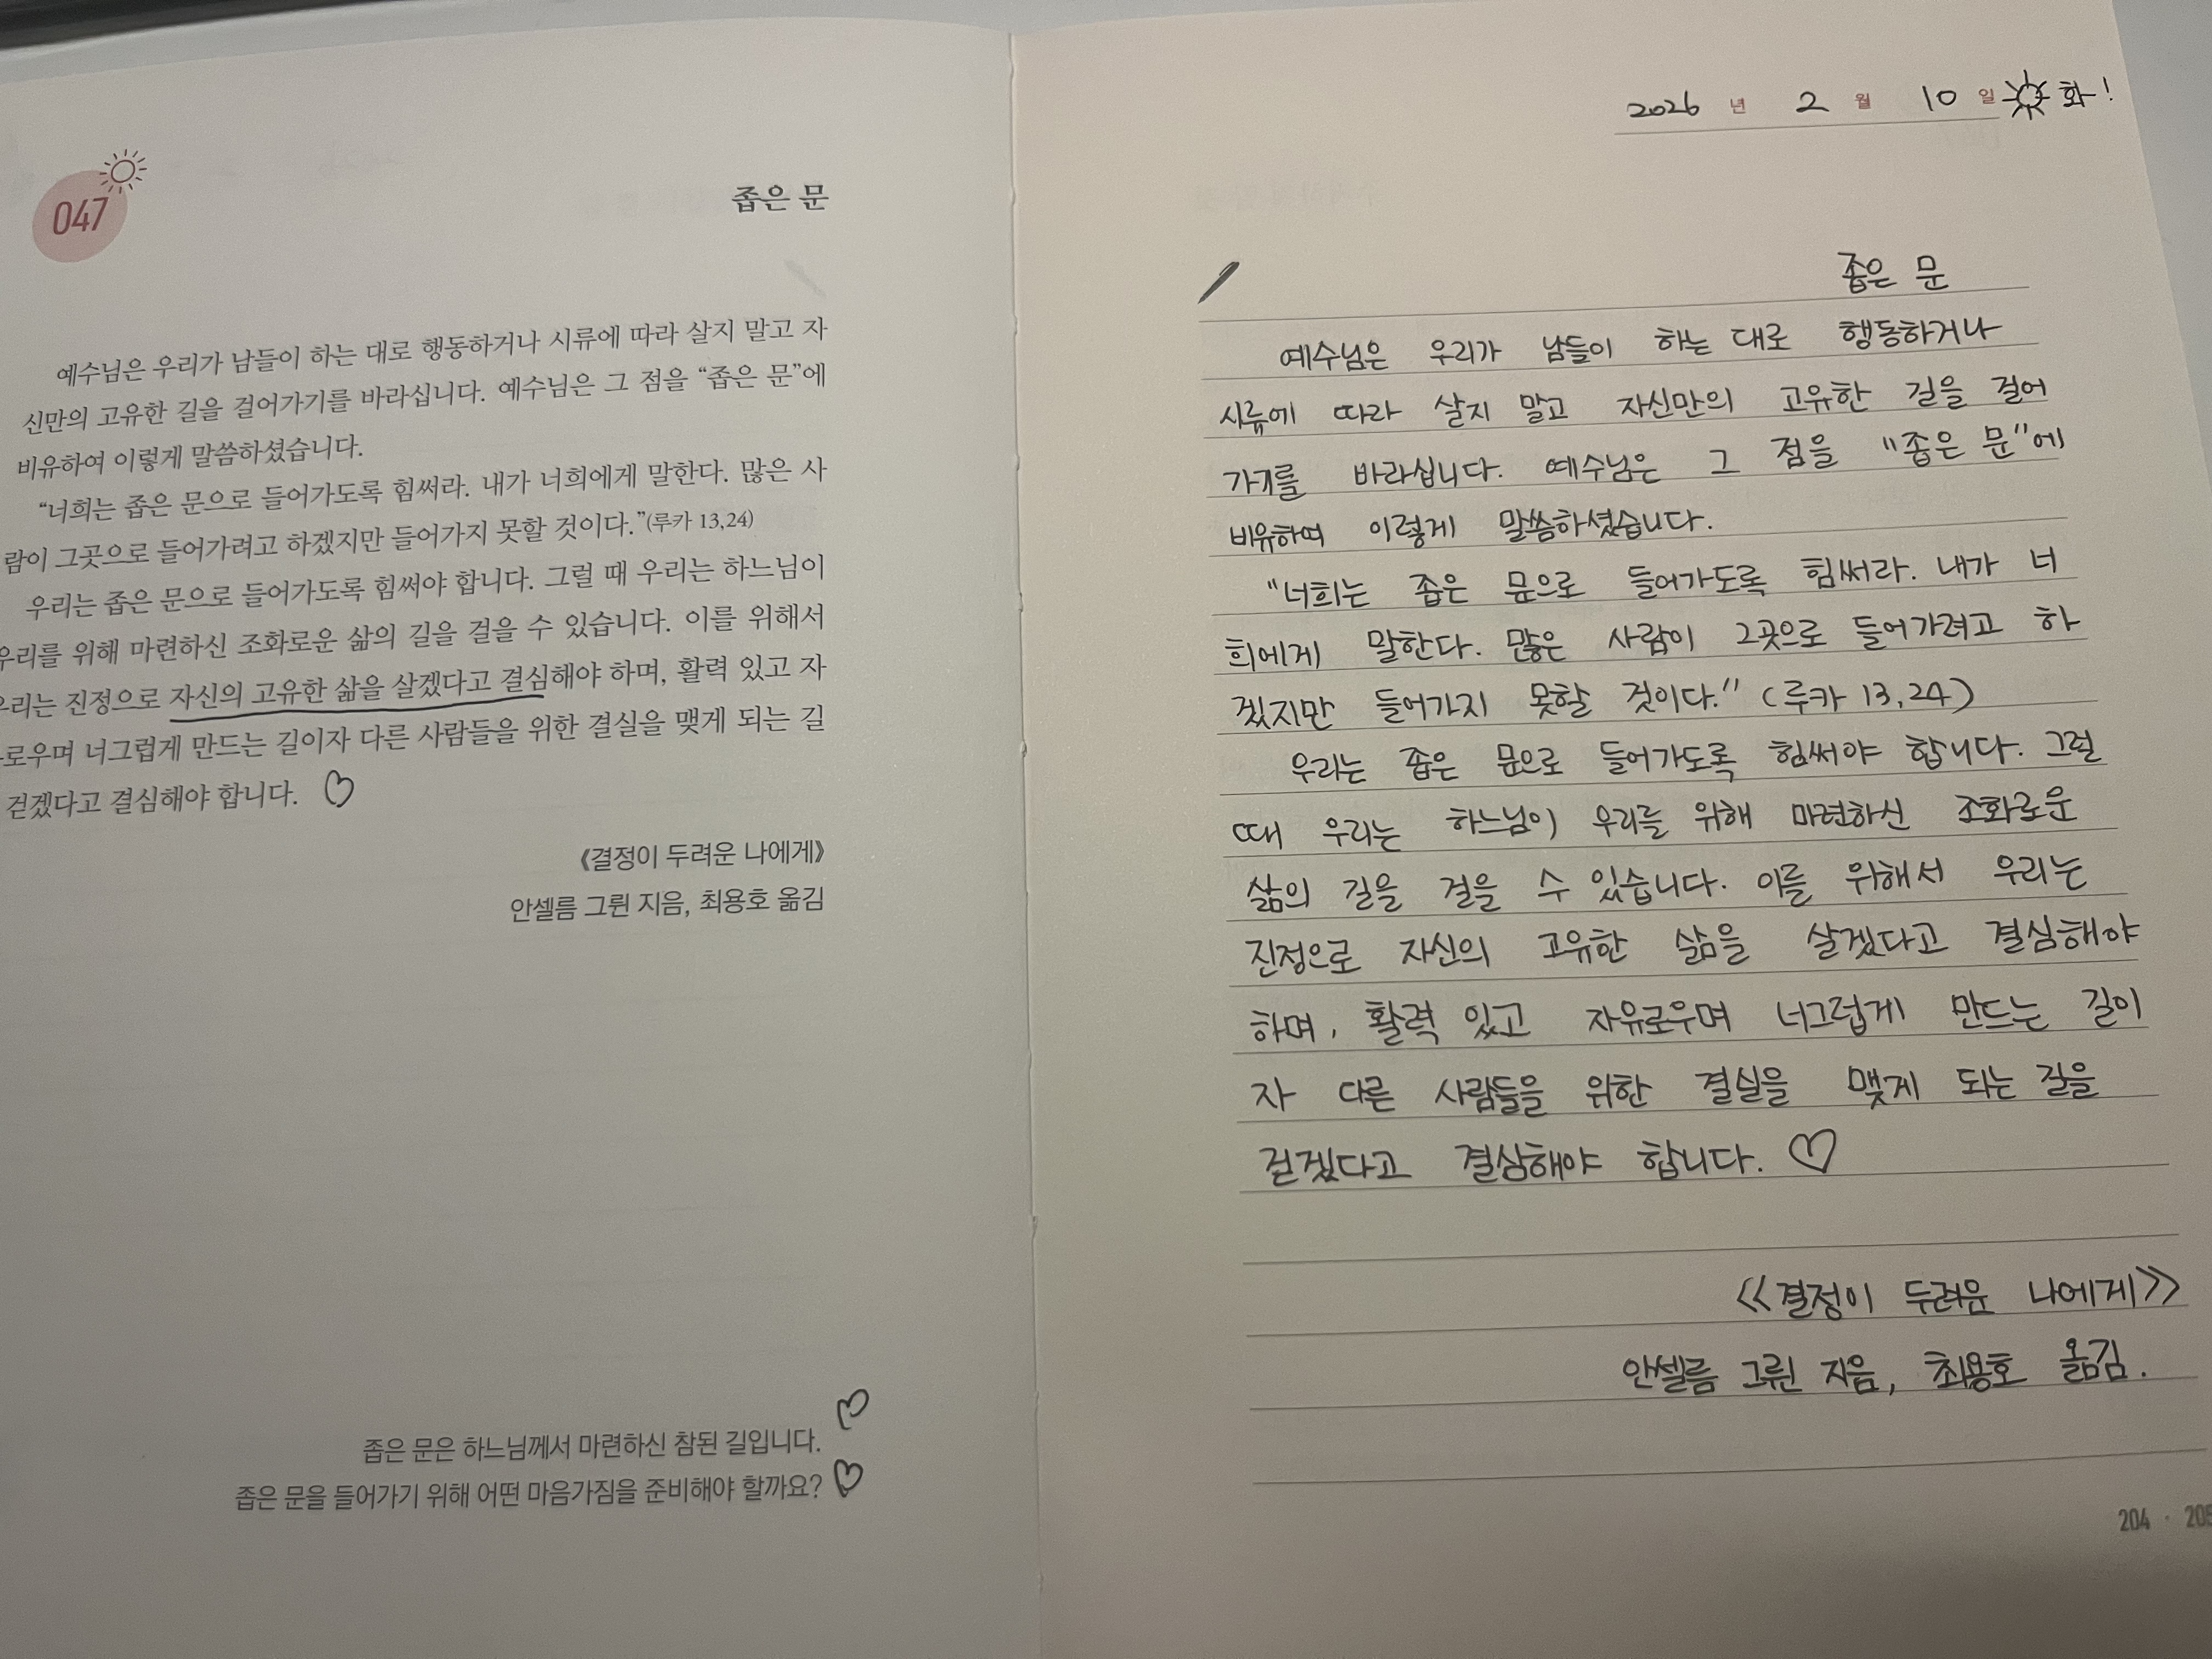 047
좁은 문
예수님은 우리가 남들이 하는 대로 행동하거나 시류에 따라 살지 말고 자
신만의 고유한 길을 걸어가기를 바라십니다. 예수님은 그 점을 “좁은 문”에
비유하여 이렇게 말씀하셨습니다.
“너희는 좁은 문으로 들어가도록 힘써라. 내가 너희에게 말한다. 많은 사
람이 그곳으로 들어가려고 하겠지만 들어가지 못할 것이다.”(루카 13,24)
우리는 좁은 문으로 들어가도록 힘써야 합니다. 그럴 때 우리는 하느님이
우리를 위해 마련하신 조화로운 삶의 길을 걸을 수 있습니다. 이를 위해서
우리는 진정으로 자신의 고유한 삶을 살겠다고 결심해야 하며, 활력 있고 자
유로우며 너그럽게 만드는 길이자 다른 사람들을 위한 결실을 맺게 되는 길
걷겠다고 결심해야 합니다. ♡
《결정이 두려운 나에게》
안셀름 그륀 지음, 최용호 옮김
좁은 문은 하느님께서 마련하신 참된 길입니다. ♡
좁은 문을 들어가기 위해 어떤 마음가짐을 준비해야 할까요? ♡
2026 년 2 월 10 일 화!
좁은 문
예수님은 우리가 남들이 하는 대로 행동하거나
시류에 따라 살지 말고 자신만의 고유한 길을 걸어
가기를 바라십니다. 예수님은 그 점을 "좁은 문"에
비유하여 이렇게 말씀하셨습니다.
"너희는 좁은 문으로 들어가도록 힘써라. 내가 너
희에게 말한다. 많은 사람이 그곳으로 들어가려고 하
겠지만 들어가지 못할 것이다." (루카 13,24)
우리는 좁은 문으로 들어가도록 힘써야 합니다. 그럴
때 우리는 하느님이 우리를 위해 마련하신 조화로운
삶의 길을 걸을 수 있습니다. 이를 위해서 우리는
진정으로 자신의 고유한 삶을 살겠다고 결심해야
하며, 활력 있고 자유로우며 너그럽게 만드는 길이
자 다른 사람들을 위한 결실을 맺게 되는 길을
걷겠다고 결심해야 합니다. ♡
<<결정이 두려운 나에게>>
안셀름 그륀 지음, 최용호 옮김.
204 · 205